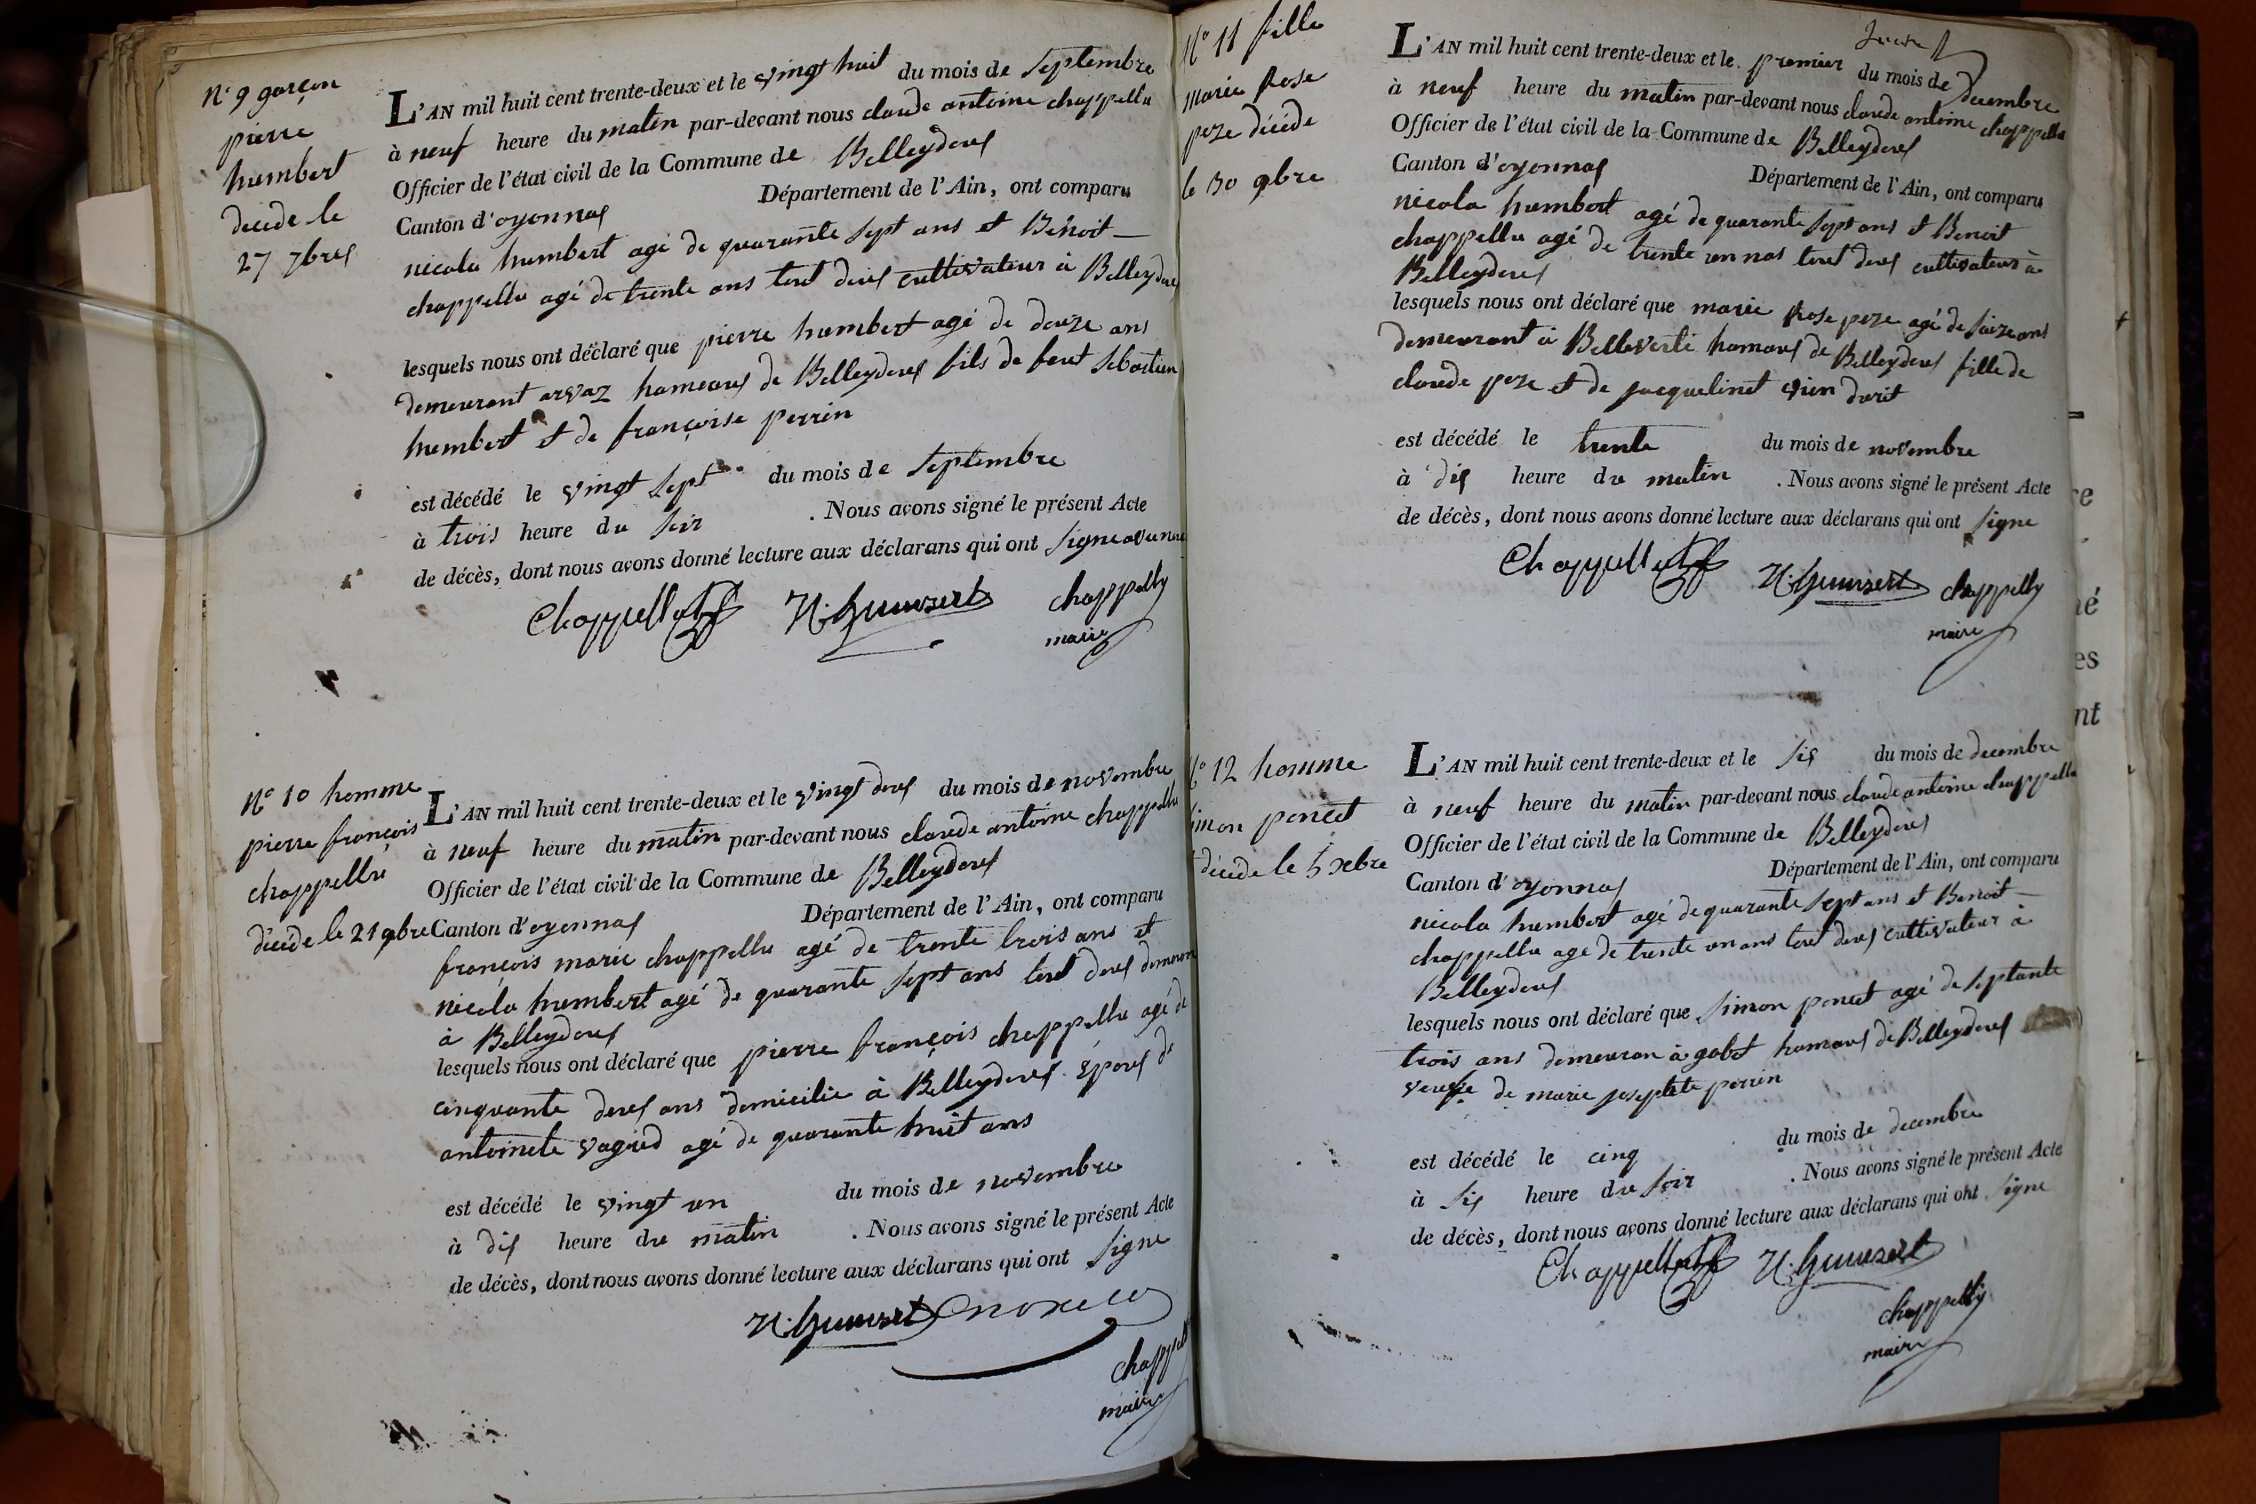 N° 9 garçon
pierre
humbert
décéde le
27 7bres
L'AN mil huit cent trente-deux et le vingt huit du mois de septembre
à neuf heure du matin par-devant nous claude antoine chappellu
Officier de l'état civil de la Commune de Belleydoux
Canton d'oyonnas Département de l'Ain, ont comparu
nicola humbert agé de quarante sept ans et Bénoit
chappellu agé de trente ans tout deux cultivateur à Belleydoux
lesquels nous ont déclaré que pierre humbert agé de douze ans
demeurant orvaz hameaus de Belleydoux fils de feut sebastien
humbert et de françoise perrin
est décédé le vingt sept du mois de septembre
à trois heure du soir . Nous avons signé le présent Acte
de décès, dont nous avons donné lecture aux déclarans qui ont signe
N. humbert
maire
N° 10 homme
pierre françois
chappellu
décéde le 21 9bre
L'AN mil huit cent trente-deux et le vingt deux du mois de novembre
à neuf heure du matin par-devant nous claude antoine chappellu
Officier de l'état civil de la Commune de Belleydoux
Canton d'oyonnas Département de l'Ain, ont comparu
françois marie chappellu agé de trente trois ans et
nicola humbert agé de quarante sept ans tout deux demeuran
à Belleydoux
lesquels nous ont déclaré que pierre françois chappellu agé de
cinquante deux ans domicilie à Belleydoux Épous de
antoinete agé de quarante huit ans
est décédé le vingt un du mois de novembre
à dix heure du matin . Nous avons signé le présent Acte
de décès, dont nous avons donné lecture aux déclarans qui ont signe
N. humbert
maire
N° 11 fille
marie Rose
poze décéde
le 30 9bre
L'AN mil huit cent trente-deux et le premier du mois de decembre
à neuf heure du matin par-devant nous claude antoine chappellu
Officier de l'état civil de la Commune de Belleydoux
Canton d'oyonnas Département de l'Ain, ont comparu
nicola humbert agé de quarante sept ans et Benoit
chappellu agé de trente un nas tout deux cultivateur à
Belleydoux
lesquels nous ont déclaré que marie Rose poze agé de saize ans
demeurant à Bellevoite hamaus de Belleydoux fille de
claude poze et de jacquelinet
est décédé le trente du mois de novembre
à dix heure du matin . Nous avons signé le présent Acte
de décès, dont nous avons donné lecture aux déclarans qui ont signe
N. humbert
maire
12 homme
simon poncet
décéde le 5 xbre
L'AN mil huit cent trente-deux et le six du mois de decembre
à neuf heure du matin par-devant nous claude antoine chappellu
Officier de l'état civil de la Commune de Belleydoux
Canton d'oyonnas Département de l'Ain, ont comparu
nicola humbert agé de quarante sept ans et Benoit
chappellu age de trente un ans tout deux cultivateur à
Belleydoux
lesquels nous ont déclaré que simon poncet agé de septante
trois ans demeuran à gobet hamaus de Belleydoux
veufve de marie josephte perrin
est décédé le cinq du mois de decembre
à six heure du soir . Nous avons signé le présent Acte
de décès, dont nous avons donné lecture aux déclarans qui ont signe
N. humbert
maire